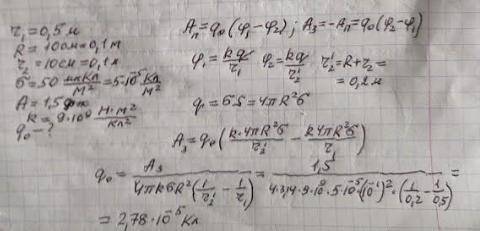 r₁ = 0,5 м
R = 10 см = 0,1 м
r₂ = 10 см = 0,1 м
σ = 50 мкКл/м² = 5·10⁻⁵ Кл/м²
A = 1,5
k = 9·10⁹ Н·м²/Кл²
q₀ - ?
Aₙ = q₀(φ₁-φ₂); A₃ = -Aₙ = q₀(φ₂-φ₁)
φ₁ = kq/r₁ φ₂ = kq/r₂' r₂' = R + r₂ =
= 0,2 м
q = σ·S = 4πR²σ
A₃ = q₀(k·4πR²σ/r₂' - k4πR²σ/r₁)
q₀ = A₃/(4πkσR²(1/r₂' - 1/r₁)) = 1,5/(4·3,14·9·10⁹·5·10⁻⁵·(10⁻¹)²·(1/0,2 - 1/0,5)) =
= 2,78·10⁻⁵ Кл